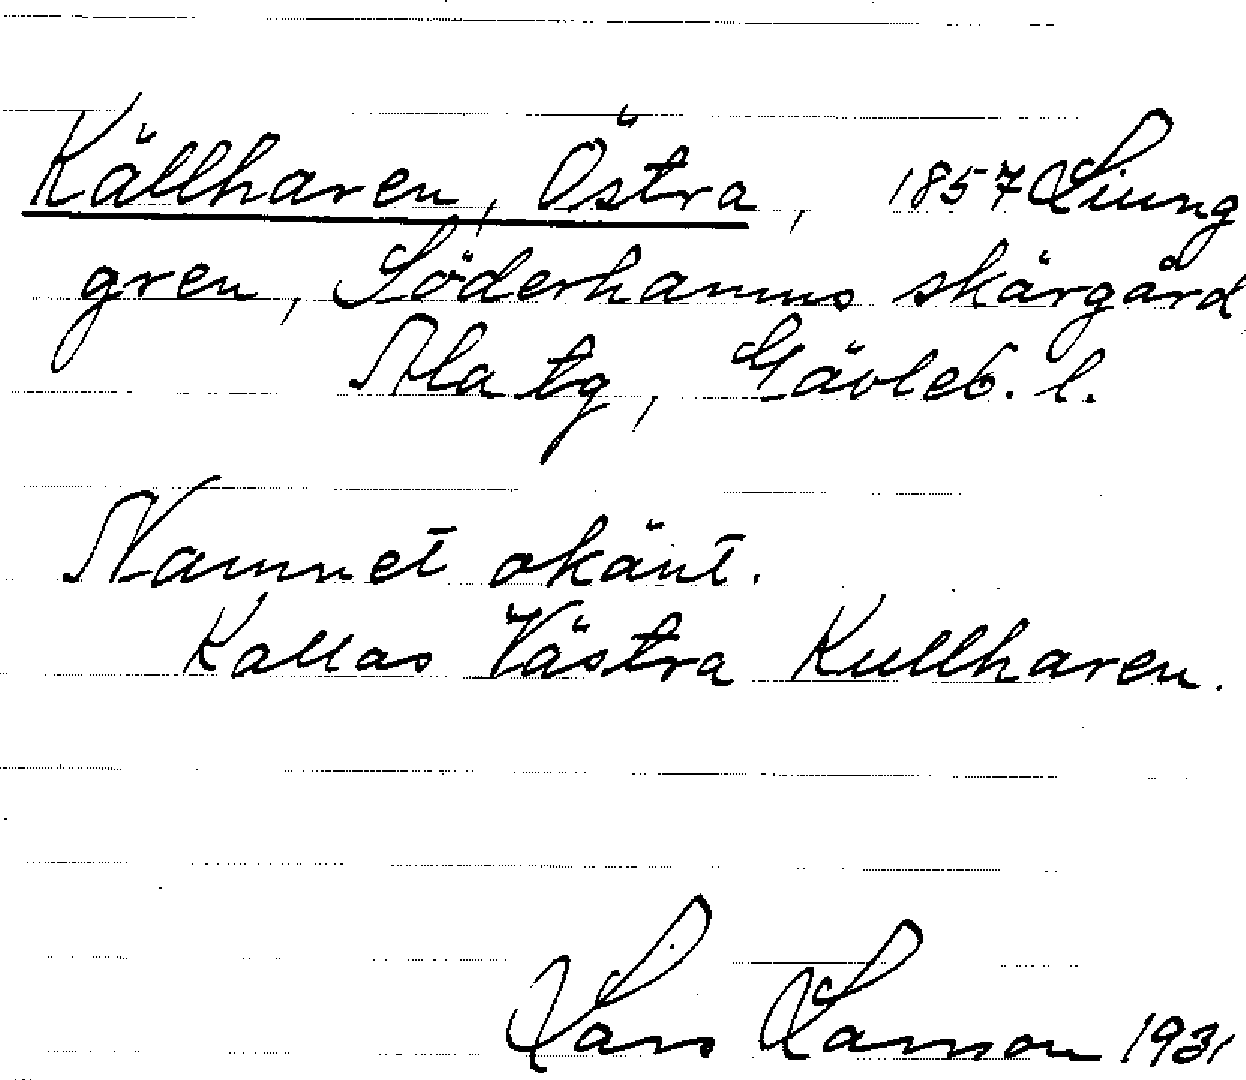 Källharen, Östra, 1857 Liung
gren, Söderhamns skärgård
Ala tg, Gävleb. l.
Namnet okänt.
Kallas Västra Kullharen.
Lars Larson 1931